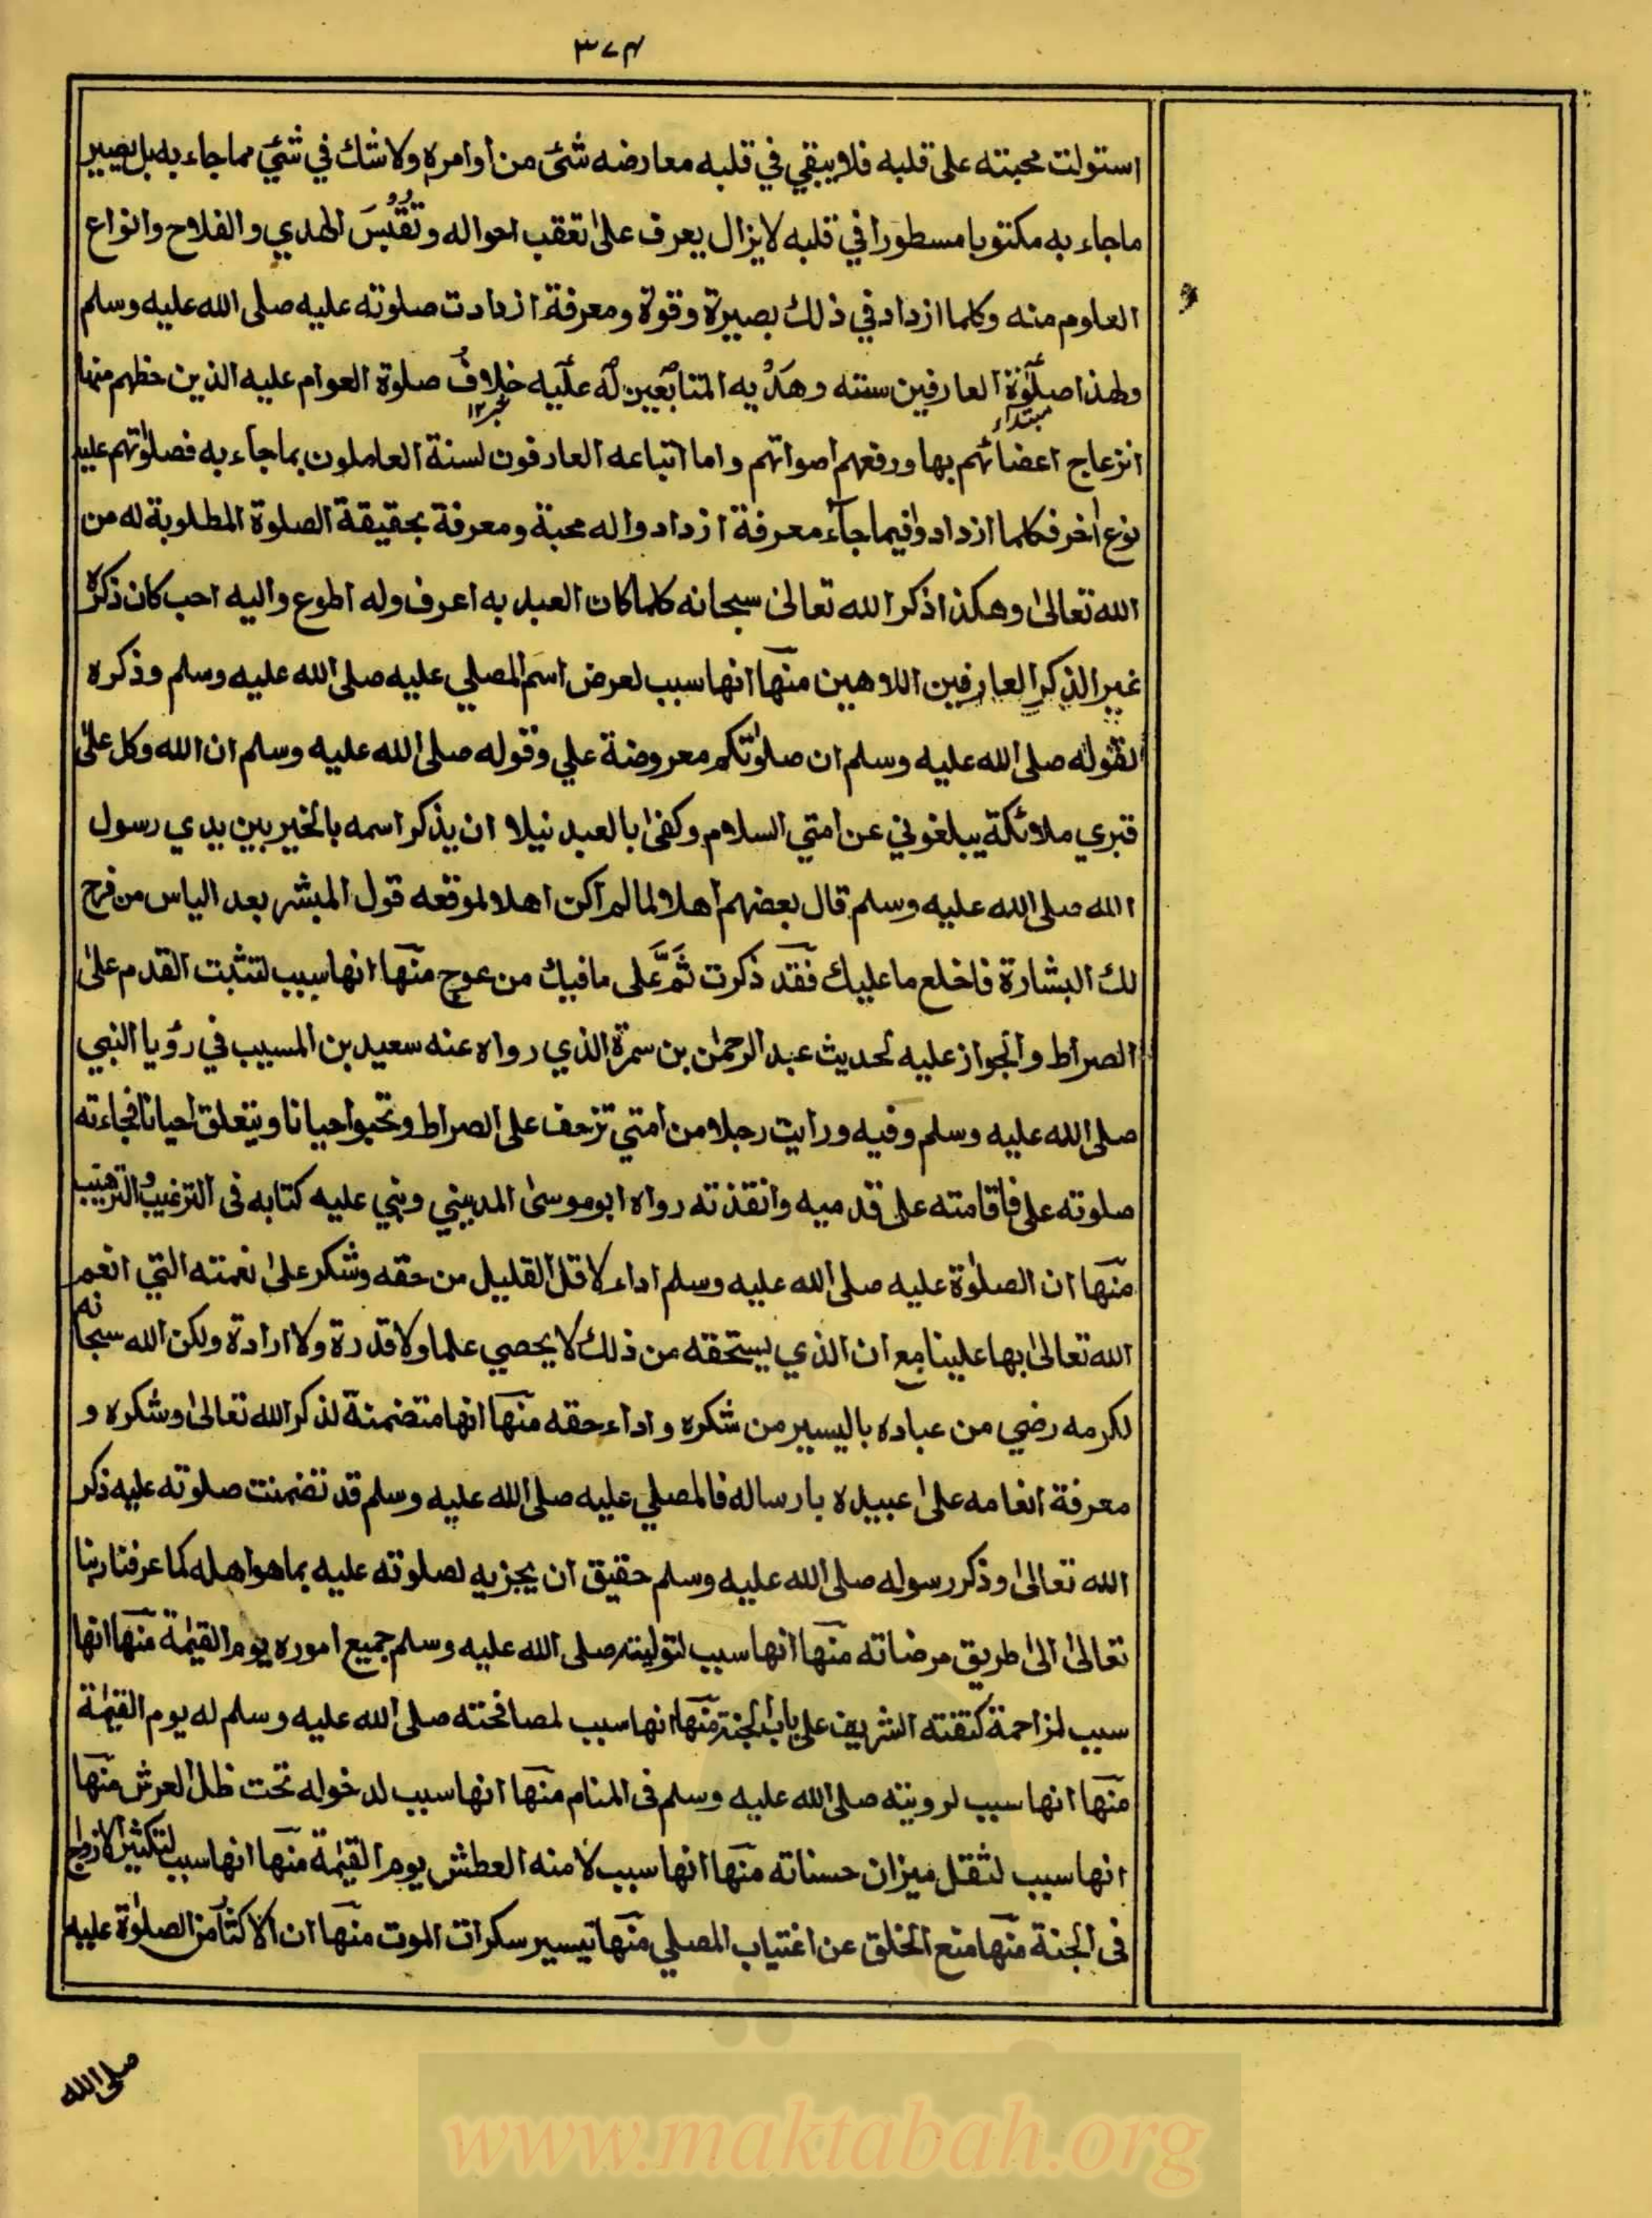 ٣٧٤
استولت محبته على قلبه فلا يبقي في قلبه معارضه شئ من اوامره ولا شك في شئ مما جاء به بل يصير
ما جاء به مكتوبا مسطورا في قلبه لا يزال يعرف على تعقب احواله و الهدي و الفلاح وانواع
العلوم منه وكلما ازداد في ذلك بصيرة وقوة ومعرفة ازدادت صلوته عليه صلى الله عليه وسلم
ولهذا صلوٰة العارفين سنته وهديه المتابعين له عليه خلاف صلوة العوام عليه الذين حظهم منها
مبتداء خبر١٢
انزعاج اعضائهم بها ورفعهم اصواتهم واما اتباعه العارفون لسنة العاملون بما جاء به فصلوٰتهم عليه
نوع اٰخر فكلما ازدادوا فيما جاء معرفة ازدادوا له محبة ومعرفة بحقيقة الصلوة المطلوبة له من
الله تعالىٰ وهكذا ذكر الله تعالىٰ سبحانه كلما كان العبد به اعرف وله اطوع واليه احب كان ذكره
غير الذكر العارفين اللاهين منها انها سبب لعرض اسم المصلي عليه صلى الله عليه وسلم وذكره
لقوله صلى الله عليه وسلم ان صلوٰتكم معروضة علي وقوله صلى الله عليه وسلم ان الله وكل علىٰ
قبري ملائكة يبلغوني عن امتي السلام وكفىٰ بالعبد نيلا ان يذكر اسمه بالخير بين يدي رسول
الله صلى الله عليه وسلم قال بعضهم اهلا لما لم اكن اهلا لموقعه قول المبشر بعد الياس من فرج
لك البشارة فاخلع ما عليك فقد ذكرت ثَمَّ على ما فيك من عوج منها انها سبب لتثبت القدم علىٰ
الصراط والجواز عليه لحديث عبد الرحمٰن بن سمرة الذي رواه عنه سعيد بن المسيب في رؤيا النبي
صلى الله عليه وسلم وفيه ورايت رجلا من امتي تزحف على الصراط وتحبوا حيانا ويتعلق احيانا فجاءته
صلوته علي فاقامته على قدميه وانقذته رواه ابو موسىٰ المديني وبني عليه كتابه فى الترغيب والترهيب
منها ان الصلوٰة عليه صلى الله عليه وسلم اداء لاقل القليل من حقه وشكر علىٰ نعمته التي انعم
الله تعالىٰ بها علينا مع ان الذي يستحقه من ذلك لا يحصي علما ولا قدرة ولا ارادة ولكن الله سبحانه
لكرمه رضي من عباده باليسير من شكره واداء حقه منها انها متضمنة لذكر الله تعالىٰ وشكره و
معرفة انعامه علىٰ عبيده بارساله فالمصلي عليه صلى الله عليه وسلم قد تضمنت صلوته عليه ذكر
الله تعالىٰ وذكر رسوله صلى الله عليه وسلم حقيق ان يجزيه لصلوته عليه بما هو اهله كما عرفنا ربنا
تعالىٰ الىٰ طريق مرضاته منها انها سبب لتوليته صلى الله عليه وسلم جميع اموره يوم القيٰمة منها انها
سبب لمزاحمة كتفته الشريف على باب الجنة منها انها سبب لمصافحته صلى الله عليه وسلم له يوم القيٰمة
منها انها سبب لرويته صلى الله عليه وسلم فى المنام منها انها سبب لدخوله تحت ظل العرش منها
انها سبب لثقل ميزان حسناته منها انها سبب لامنه العطش يوم القيٰمة منها انها سبب لتكثير الازواج
فى الجنة منها منع الخلق عن اغتياب المصلي منها تيسير سكرات الموت منها ان الاكثار من الصلوٰة عليه
صلى الله
www.maktabah.org